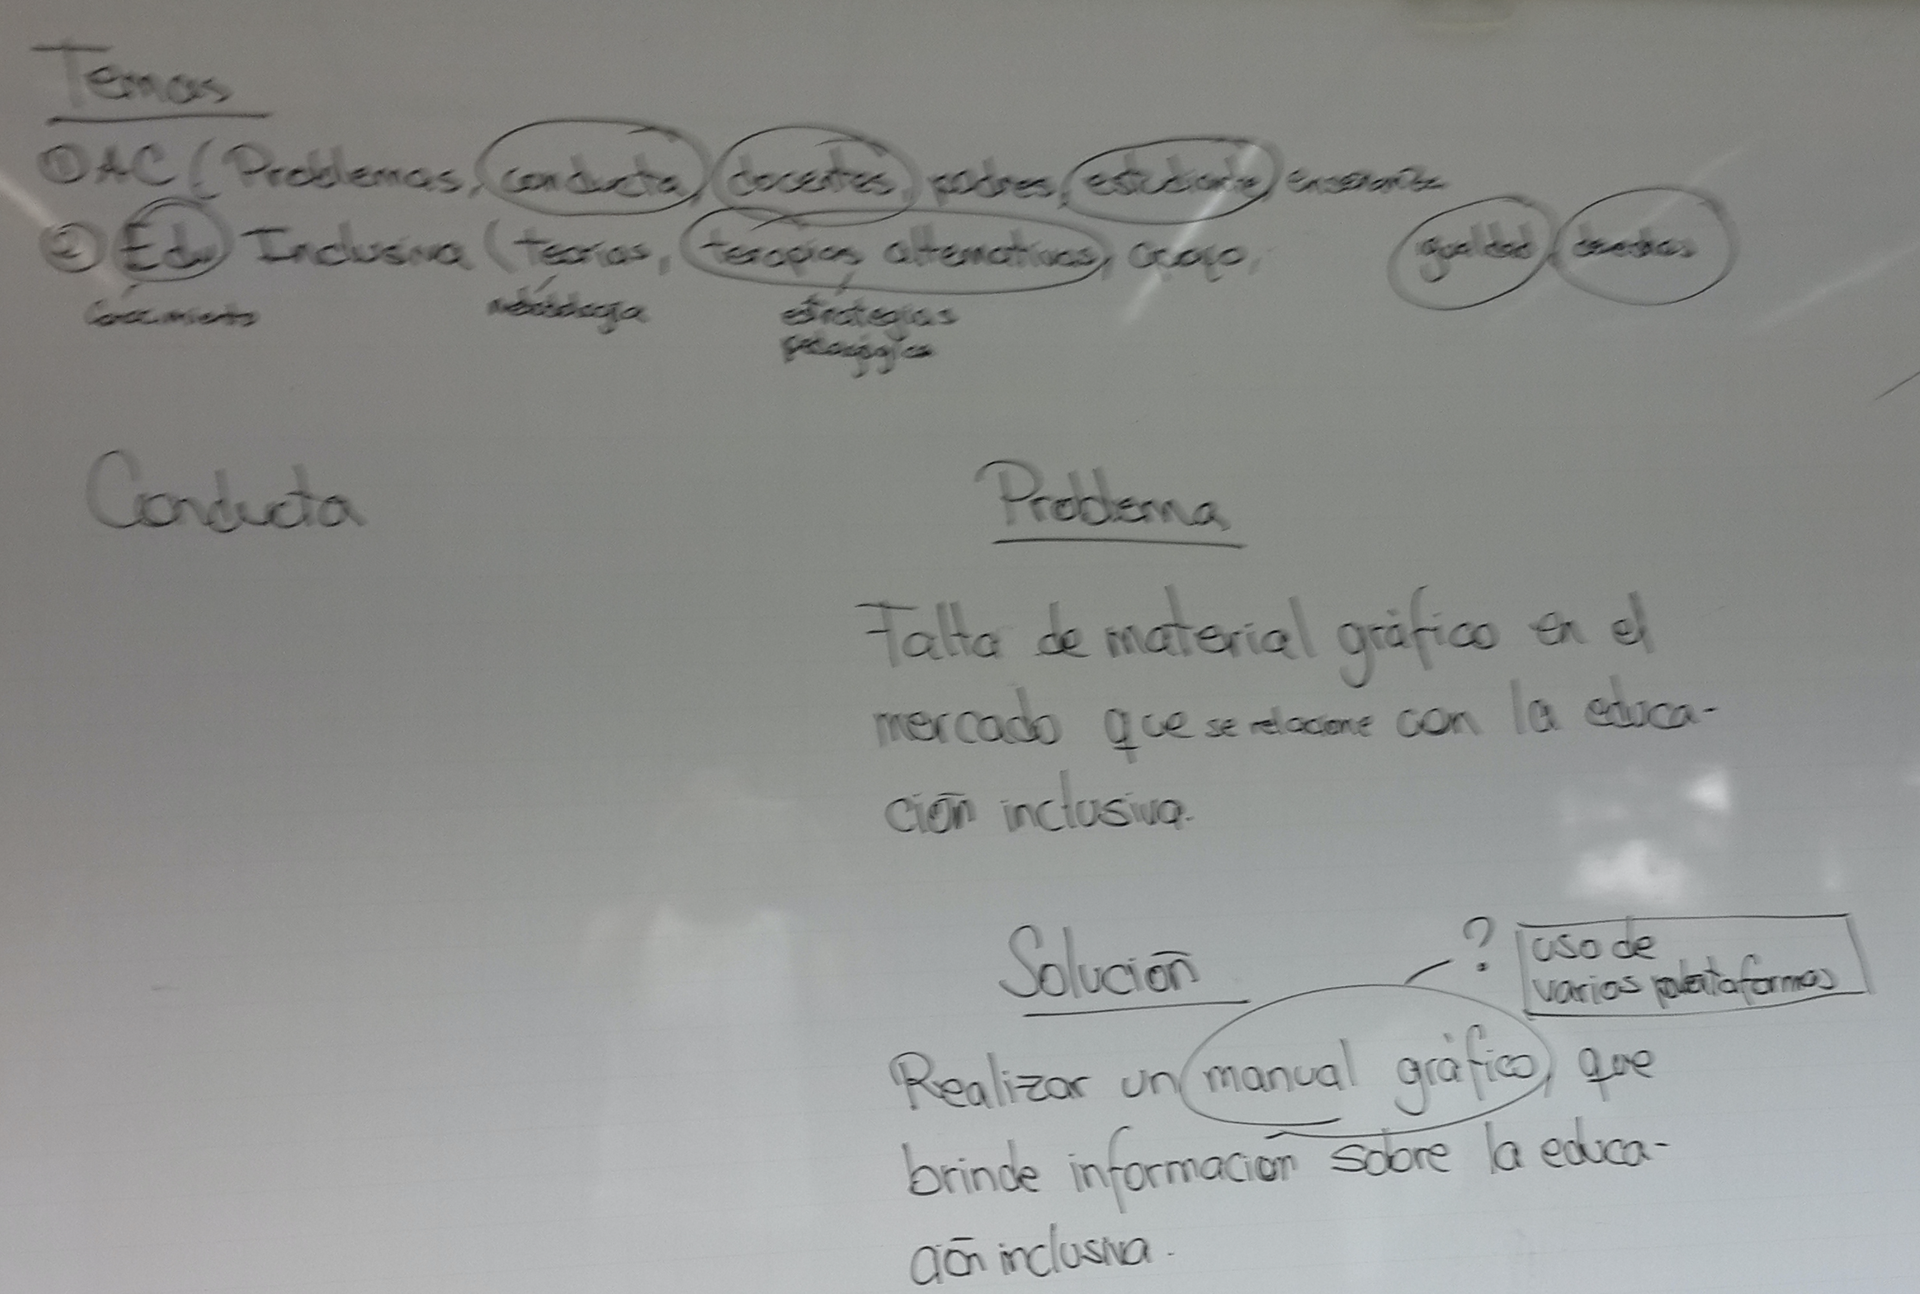 Temas
① AC (Problemas, conducta, docentes, padres, estudiante, enseñanza
② Edu Inclusiva (teorías, terapias alternativas, apoyo, igualdad, derechos
Conocimiento metodología estrategias
pedagógicas
Conducta
Problema
Falta de material gráfico en el
mercado que se relacione con la educa-
ción inclusiva.
Solución
? uso de
varias plataformas
Realizar un manual gráfico, que
brinde información sobre la educa-
ción inclusiva.